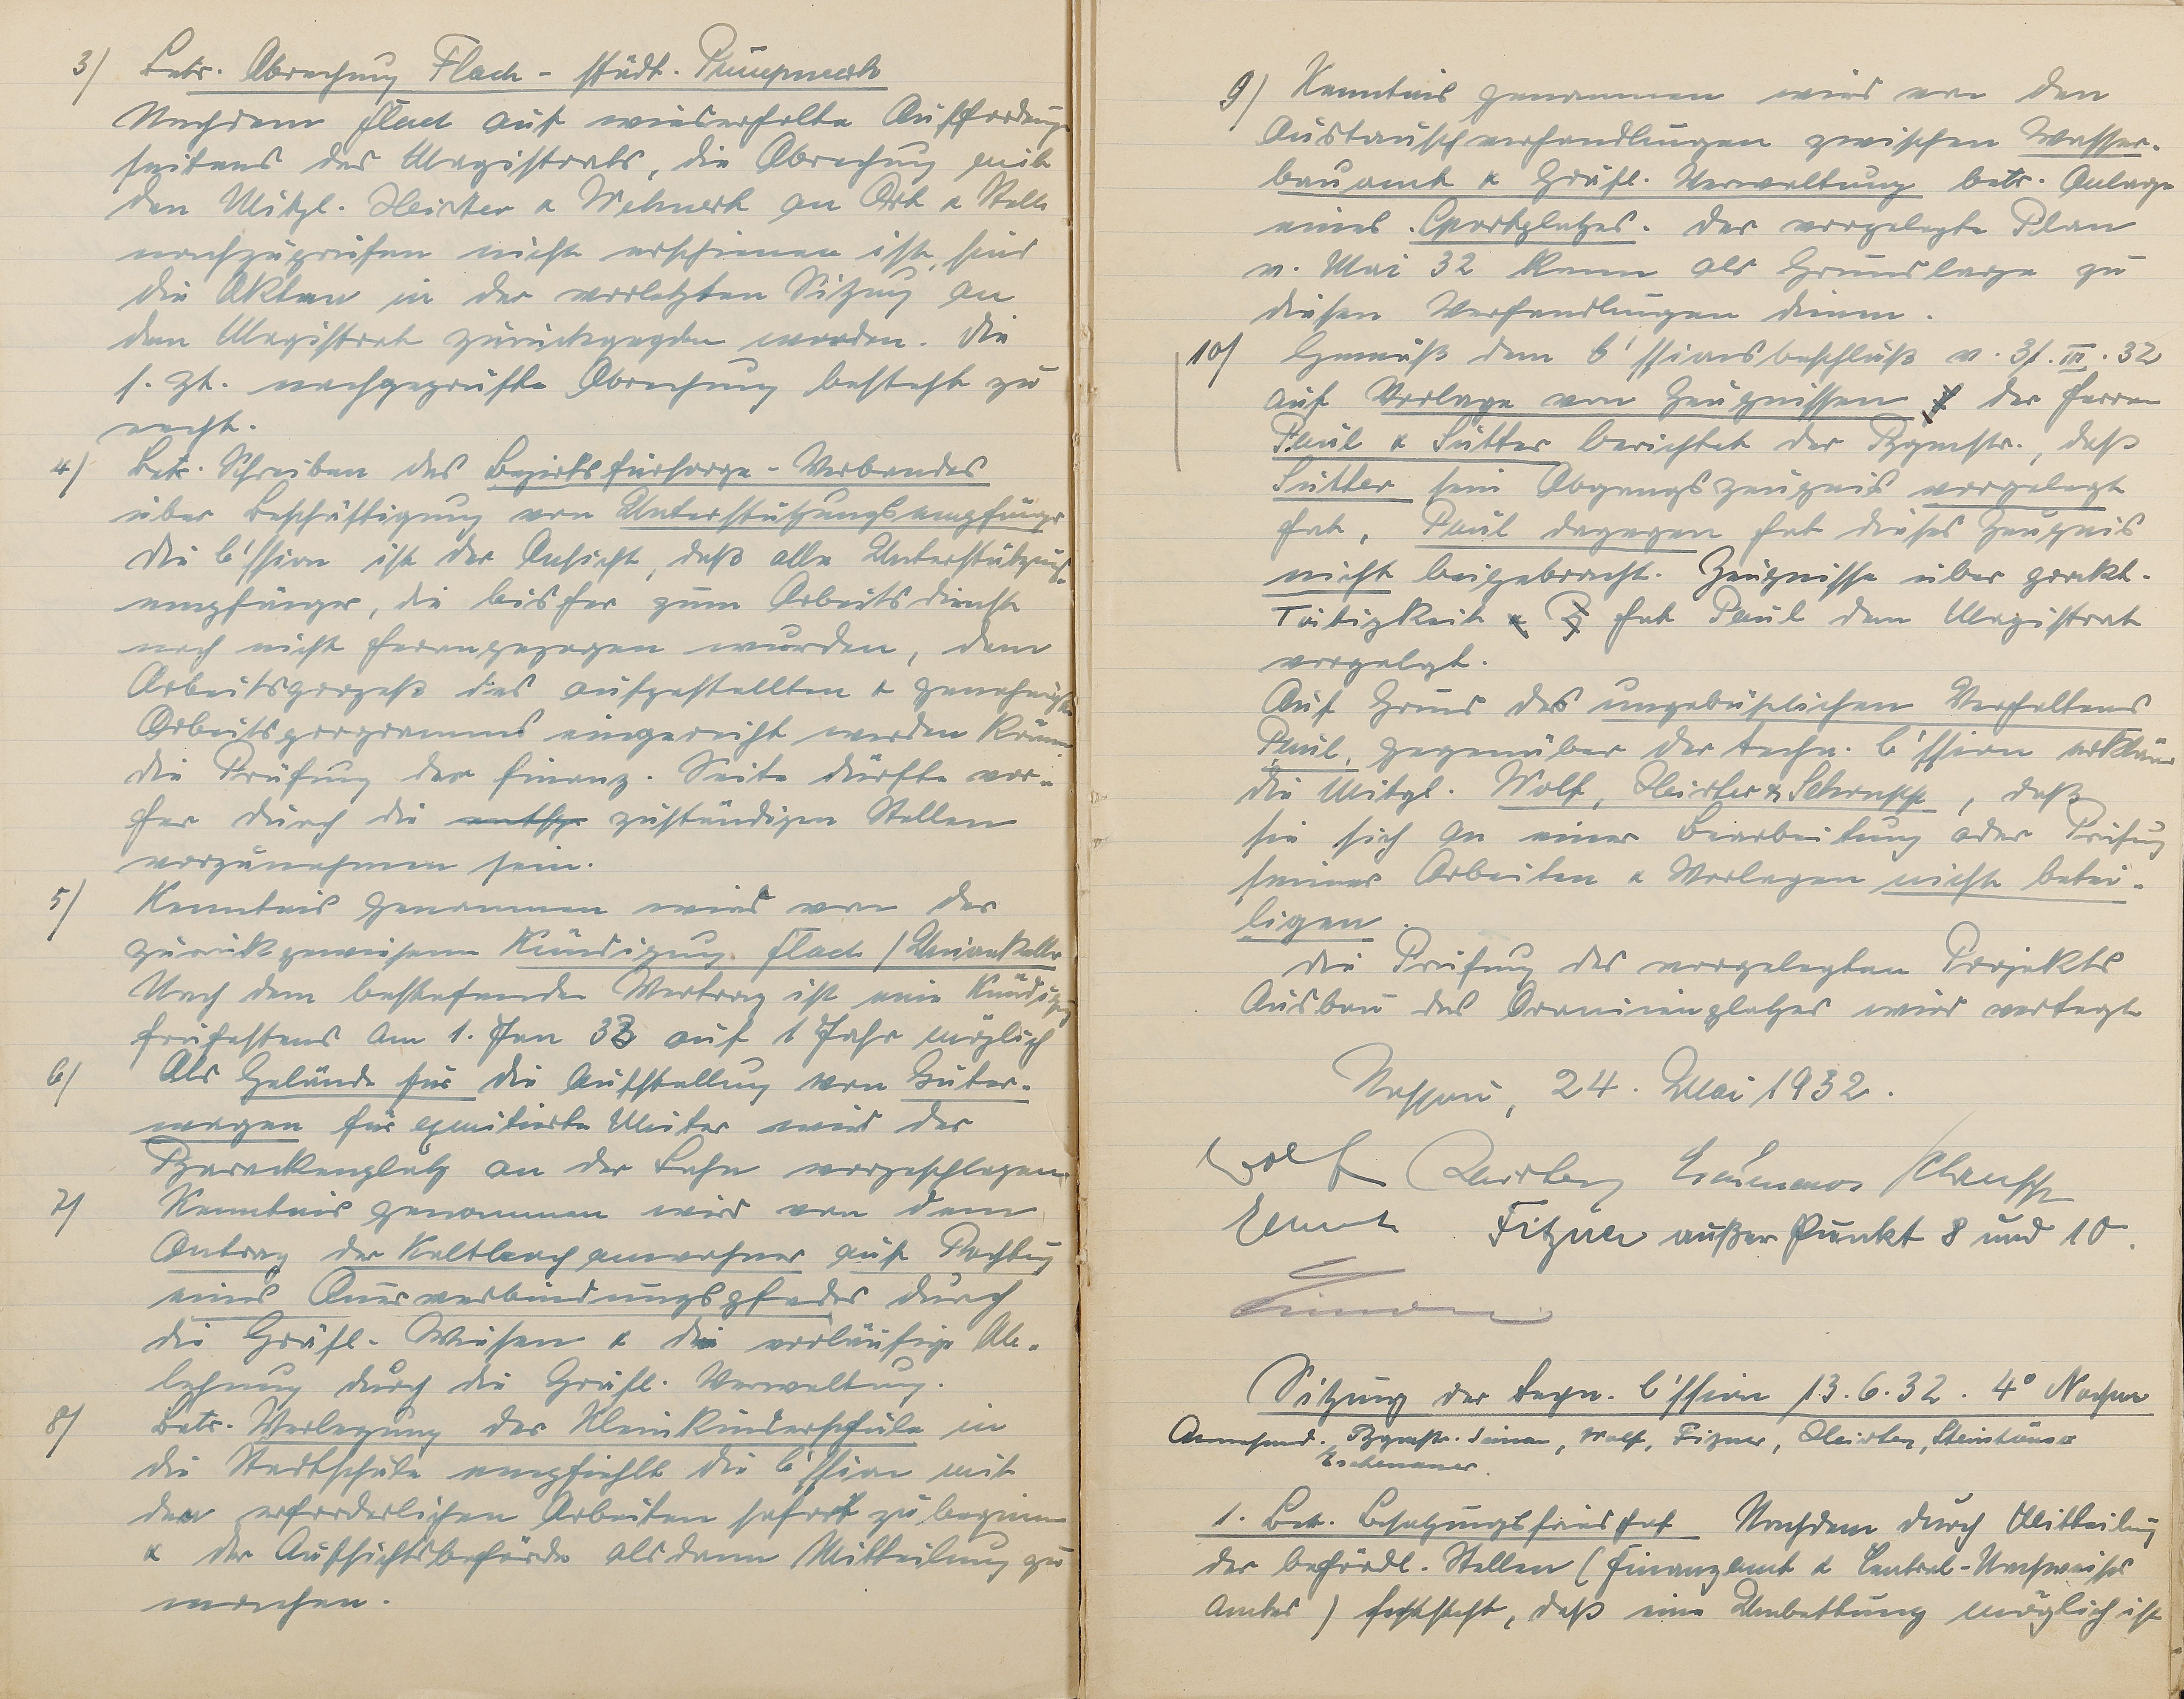 3) Betr. Abrechnung Flach - städt. Pumpwerk
Nachdem Flach auf wiederholte Aufforderung
seitens des Magistrats, die Abrechnung mit
den Mitgl. Heister & Wehnert an Ort & Stelle
nachzuprüfen nicht erschienen ist, sind
die Akten in der vorletzten Sitzung an
den Magistrat zurückgegeben worden. Die
s. Zt. nachgeprüfte Abrechnung besteht zu
recht.
4) Betr. Schreiben des Bezirksfürsorge-Verbandes
über Beschäftigung von Unterstützungsempfänger
Die C'ssion ist der Ansicht, daß alle Unterstützungs-
empfänger, die bisher zum Arbeitsdienste
noch nicht herangezogen wurden, dem
Arbeitsprozeß des aufgestellten & genehmigten
Arbeitsprogramms eingereiht werden können
Die Prüfung der finanz. Seite dürfte vor-
her durch die entspr. zuständigen Stellen
vorzunehmen sein.
5) Kenntnis genommen wird von der
zurückgewiesenen Kündigung Flach / Unionkeller
Nach dem bestehenden Vertrag ist eine Kündigung
frühestens am 1. Jan 33 auf 1 Jahr möglich
6) Als Gelände für die Aufstellung von Güter-
wagen für exmitierte Mieter wird der
Barackenplatz an der Lahn vorgeschlagen
7) Kenntnis genommen wird von dem
Antrag der Kaltbachanwohner auf Pachtung
eines Querverbindungspfades durch
die Gräfl. Wiesen & die vorläufige Ab-
lehnung durch die Gräfl. Verwaltung.
8) Betr. Verlegung der Kleinkinderschule in
die Stadtschule empfiehlt die C'ssion mit
den erforderlichen Arbeiten sofort zu beginnen
& der Aufsichtsbehörde alsdann Mitteilung zu
machen.
9) Kenntnis genommen wird von den
Austauschverhandlungen zwischen Wasser-
bauamt & Gräfl. Verwaltung betr. Anlage
eines Sportplatzes. Der vorgelegte Plan
v. Mai 32 kann als Grundlage zu
diesen Verhandlungen dienen.
10) Gemäß dem C'ssionsbeschluß v. 31.III.32
auf Vorlage von Zeugnissen der Herren
Paul & Sutter berichtet der Bgmstr., daß
Sutter sein Abgangszeugnis vorgelegt
hat, Paul dagegen hat dieses Zeugnis
nicht beigebracht. Zeugnisse über prakt.
Tätigkeit hat Paul dem Magistrat
vorgelegt.
Auf Grund des ungebührlichen Verhaltens
Paul, gegenüber der techn. C'ssion erklären
die Mitgl. Wolf, Heister & Schrupp, daß
sie sich an einer Bearbeitung oder Prüfung
seiner Arbeiten & Vorlagen nicht betei-
ligen.
Die Prüfung des vorgelegten Projekts
Ausbau des Oranienplatzes wird vertagt
Nassau, 24. Mai 1932.
Wolf Heister Eschenauer Schrupp
Fitzner außer Punkt 8 und 10.
Simon
Sitzung der techn. C'ssion 13.6.32. 4° Nachm
Anwesend. Bgmstr. Simon, Wolf, Fizner, Heister, Steinhäuser
Eschenauer.
1. Betr. Besatzungsfriedhof Nachdem durch Mitteilung
der behördl. Stellen (Finanzamt & Central-Nachweise
Amtes) feststeht, daß eine Umbettung möglich ist